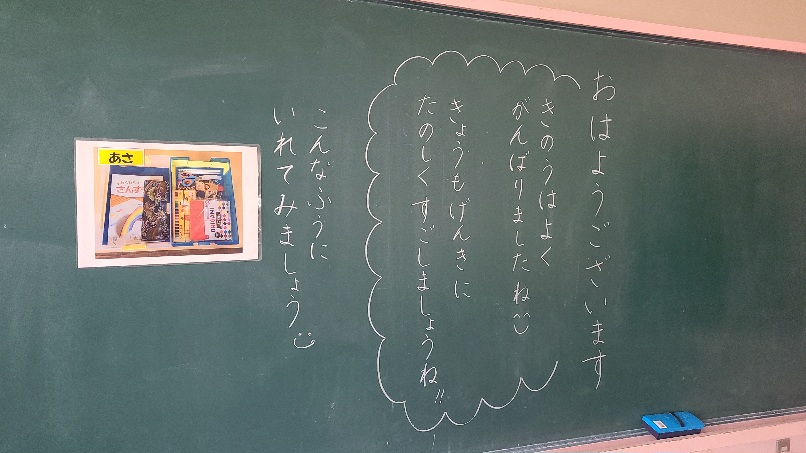 おはようございます
きのうはよく
がんばりましたね
きょうもげんきに
たのしくすごしましょうね!!
こんなふうに
いれてみましょう
あさ
さんすう